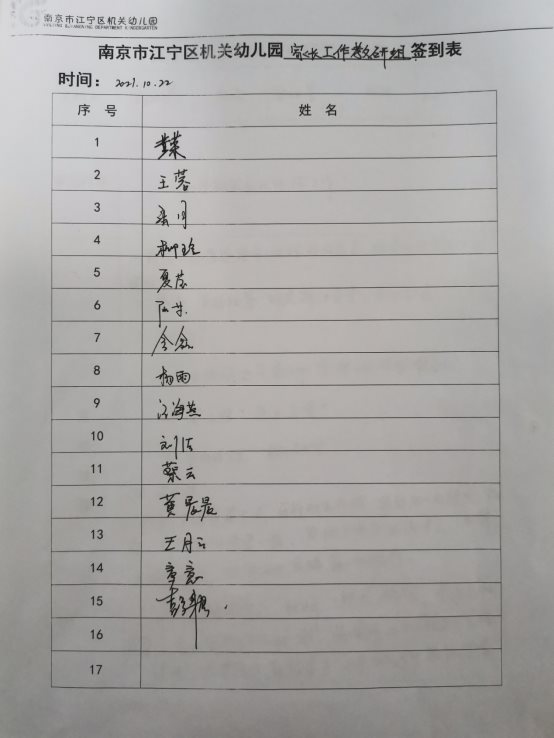 南京市江宁区机关幼儿园
南京市江宁区机关幼儿园 家长工作教研组 签到表
时间： 2021.10.22
序 号 姓 名
1
2 王蓉
3
4 柳玲
5 夏莹
6
7
8 杨雨
9 汪海燕
10 刘洁
11 蔡云
12 黄晨晨
13 王月云
14 章意
15
16
17